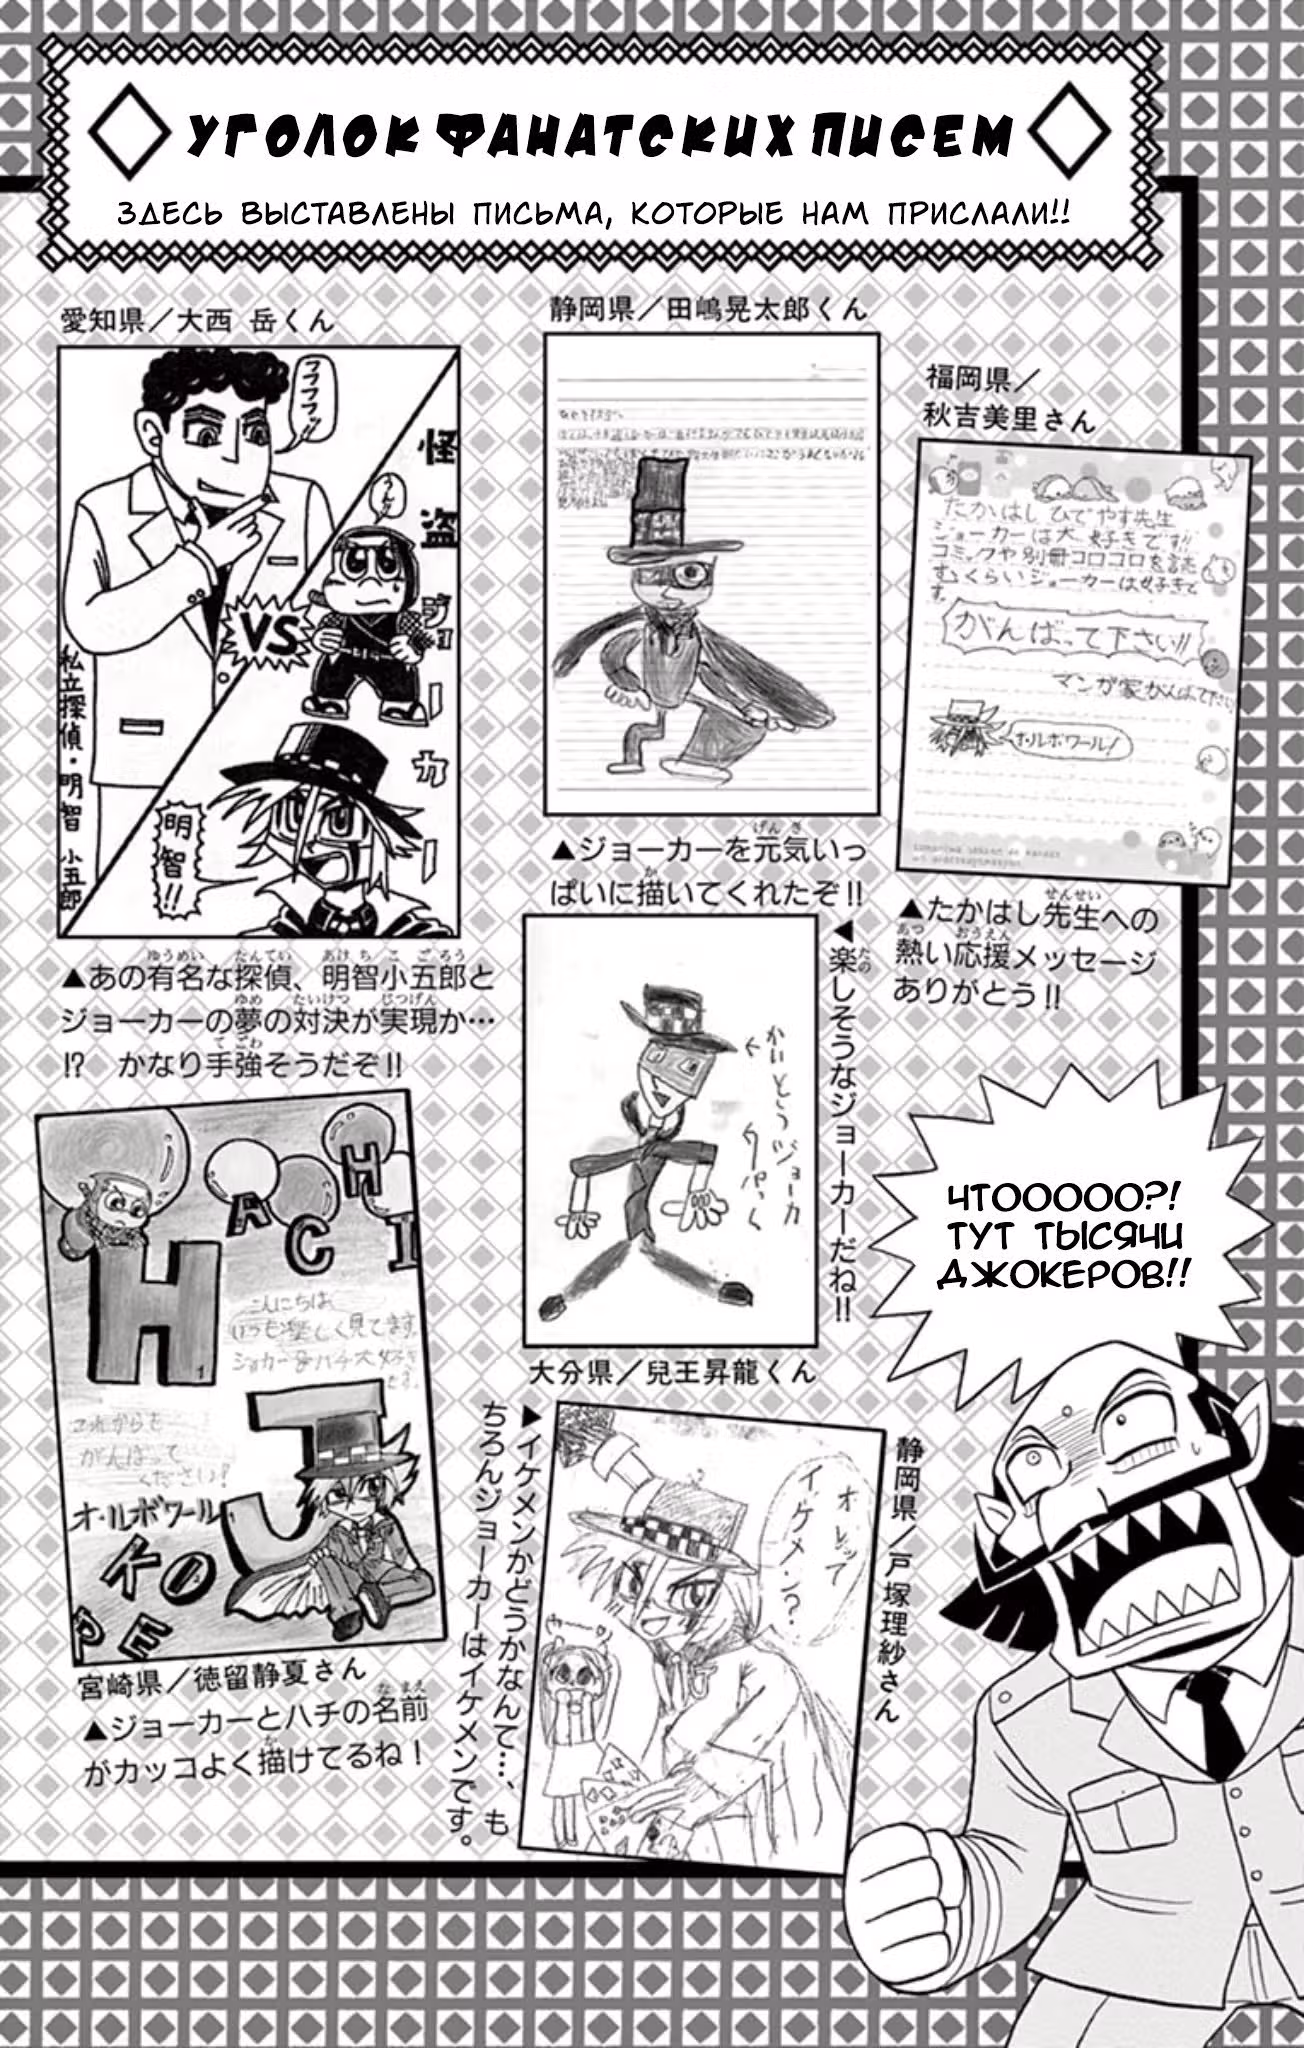 УГОЛОК ФАНАТСКИХ ПИСЕМ
ЗДЕСЬ ВЫСТАВЛЕНЫ ПИСЬМА, КОТОРЫЕ НАМ ПРИСЛАЛИ!!
愛知県／大西 岳くん
フフフフッ!!
怪盗ジョーカー
うんっ!
VS
私立探偵・明智 小五郎
明智!!
▲あの有名な探偵、明智小五郎と
ジョーカーの夢の対決が実現か…
!? かなり手強そうだぞ!!
静岡県／田嶋晃太郎くん
▲ジョーカーを元気いっ
ぱいに描いてくれたぞ!!
福岡県／
秋吉美里さん
たかはしひでやす先生
ジョーカーは大好きです!!
コミックや別冊コロコロを読
むくらいジョーカーは好きで
す。
がんばって下さい!!
マンガ家がんばって下さい
オ・ルボワール!
▲たかはし先生への
熱い応援メッセージ
ありがとう!!
かいとうジョーカー
▲楽しそうなジョーカーだね!!
大分県／兒玉昇龍くん
HACHI
H
こんにちは
いつも楽しく見てます。
ジョーカー&ハチ大好き
です。
これからも
がんばって
ください!
オ・ルボワール
J
OKER
宮崎県／徳留静夏さん
▲ジョーカーとハチの名前
がカッコよく描けてるね!
オレッて
イケメン?
静岡県／戸塚理紗さん
▲イケメンかどうかなんて…、も
ちろんジョーカーはイケメンです。
ЧТООООО?!
ТУТ ТЫСЯЧИ
ДЖОКЕРОВ!!